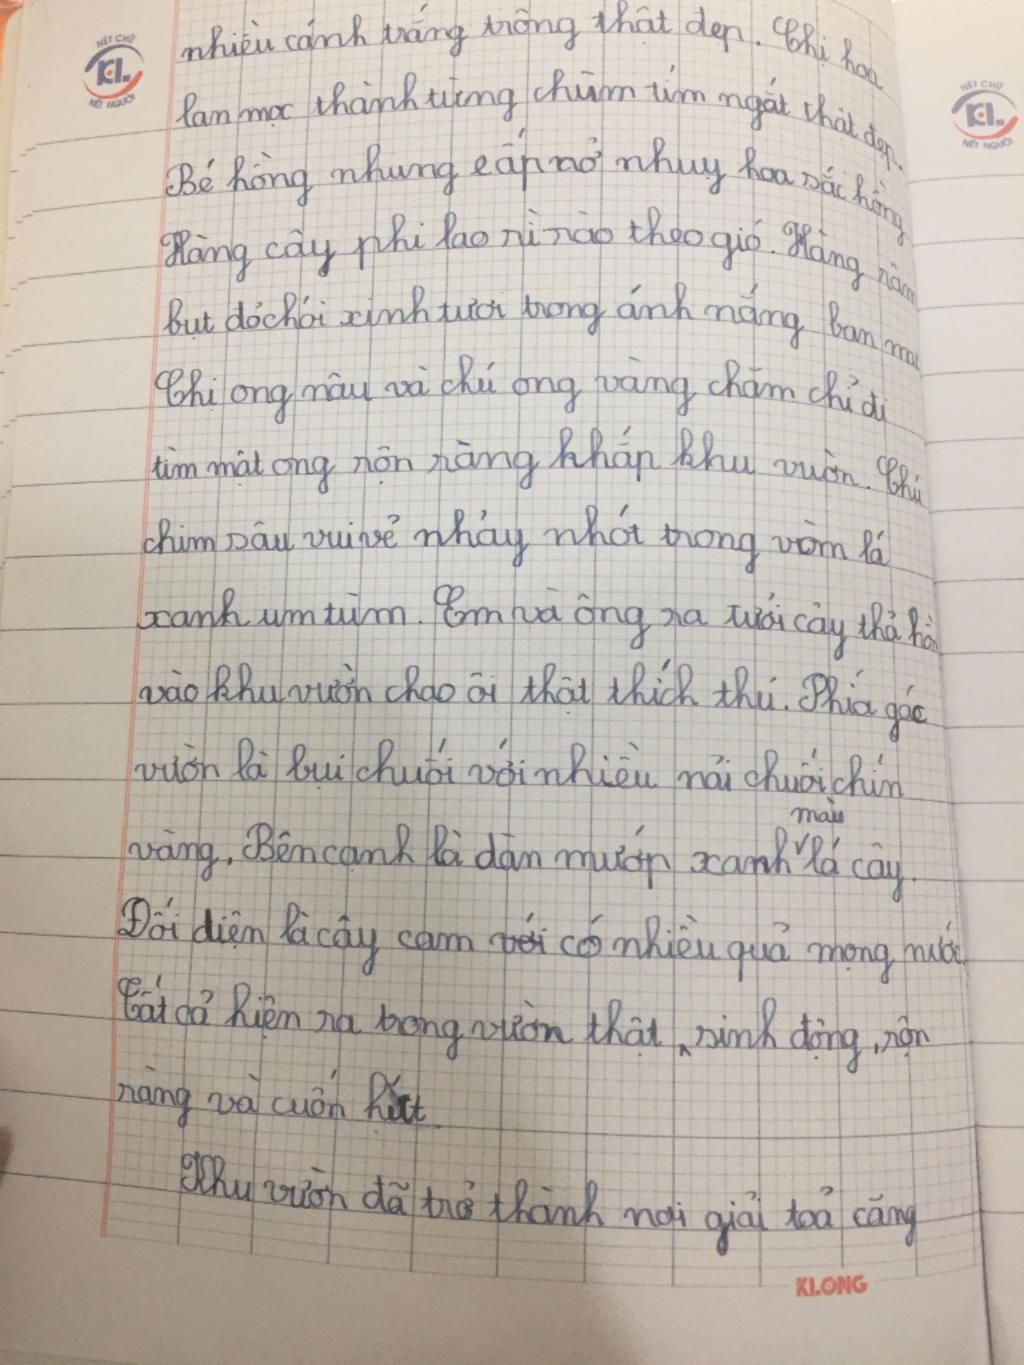 NÉT CHỮ
KL.
NẾT NGƯỜI
NÉT CHỮ
KL.
NẾT NGƯỜI
nhiều cánh trắng trông thật đẹp. Chị hoa
lan mọc thành từng chùm tím ngát thật đẹp.
Bé hồng nhung e ấp nở nhuỵ hoa sắc hồng
Hàng cây phi lao rì rào theo gió. Hàng râm
bụt đỏ chói xinh tươi trong ánh nắng ban mai
Chị ong nâu và chú ong vàng chăm chỉ đi
tìm mật ong rộn ràng khắp khu vườn. Chú
chim sâu vui vẻ nhảy nhót trong vòm lá
xanh um tùm. Em và ông ra tưới cây thả hồn
vào khu vườn chao ôi thật thích thú. Phía góc
vườn là bụi chuối với nhiều nải chuối chín
màu
vàng. Bên cạnh là dàn mướp xanh lá cây.
Đối diện là cây cam với có nhiều quả mọng nước.
Tất cả hiện ra trong vườn thật, sinh động, rộn
ràng và cuốn hút
Khu vườn đã trở thành nơi giải toả căng
KLONG